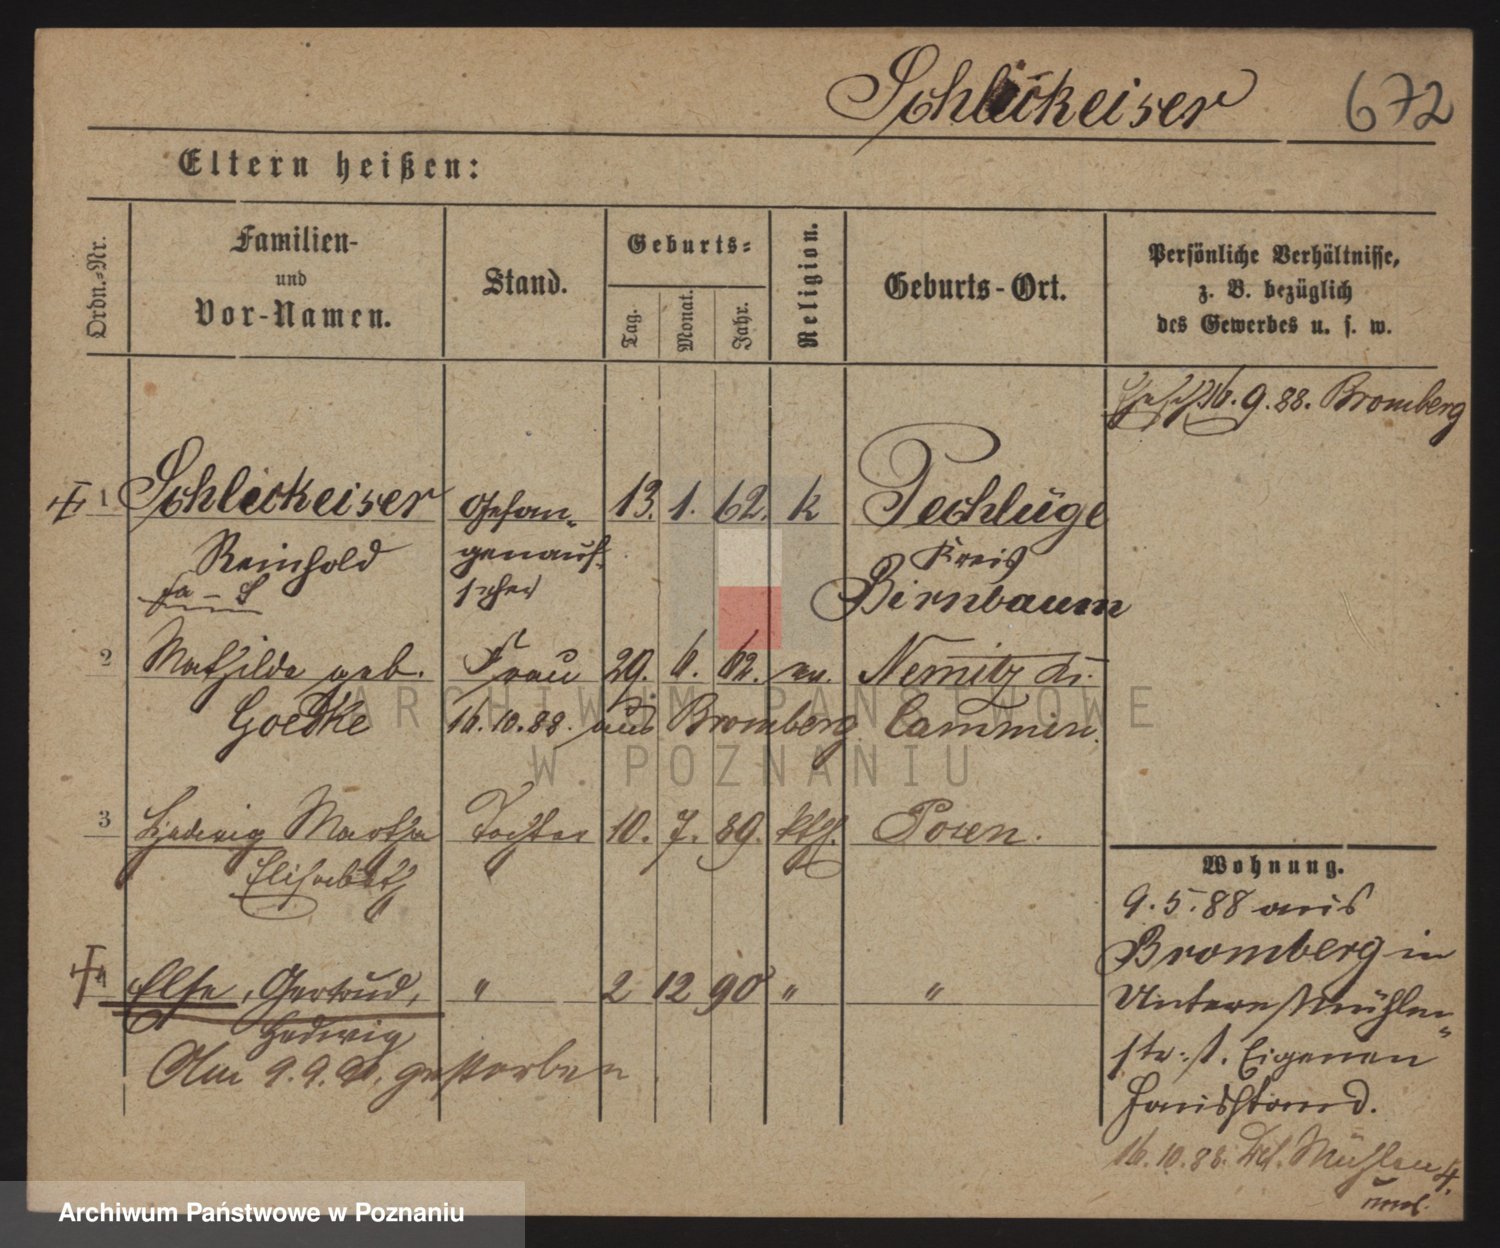 Schlickeiser 672
Eltern heißen:
Ordn.-Nr.
Familien-
und
Vor-Namen.
Stand.
Geburts-
Tag.
Monat.
Jahr.
Religion.
Geburts-Ort.
Persönliche Verhältnisse,
z. B. bezüglich
des Gewerbes u. s. w.
16. 9. 88. Bromberg
1 Schlickeiser Gefan- 13. 1. 62. k Pechlüge
Reinhold genauf- Kreis
seher Birnbaum
2 Mathilde geb. Frau 29. 6. 62. ev. Nemitz
Goedke 16.10.88. aus Bromberg Cammin.
3 Hedwig Martha Tochter 10. 7. 89. kth. Posen.
Elisabeth
4 Else, Gertrud, " 2 12 90 " "
Hedwig
Am 9. 9. gestorben
Wohnung.
9. 5. 88 aus
Bromberg in
Untere Mühlen-
str. Eigenen
Hausstand.
16. 10. 88. Mühlen 4.
ARCHIWUM PAŃSTWOWE
W POZNANIU
Archiwum Państwowe w Poznaniu